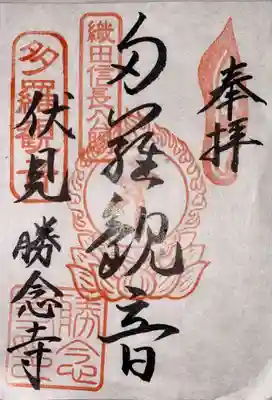 奉拝
織田信長公賜
多羅観音
多羅観音
伏見
勝念寺
勝念寺